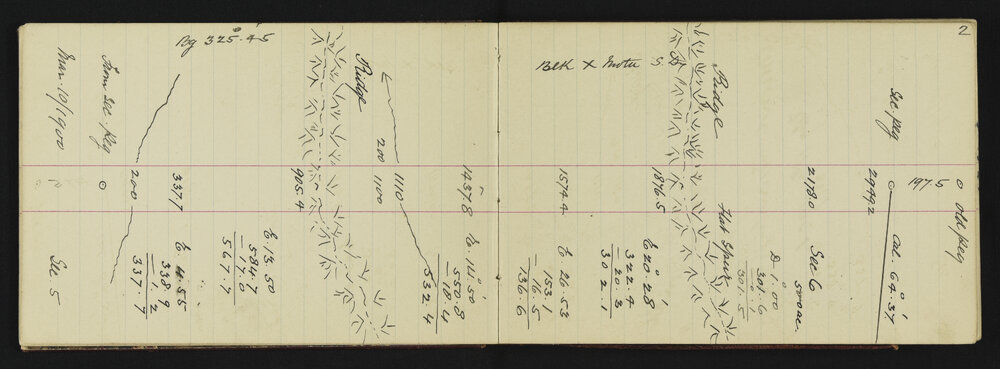 2
Bg 325.45
Blk X Motu S D
Mar. 10/1900
From Sec. Peg
Sec. 5
200
337.7
E 4.55
338.9
- 1.2
337.7
E 13.50
584.7
- 17.0
567.7
905.4
Ridge
200
1100
1110
332.4
1437.8
E. 14°50'
550.8
- 18.4
1574.4
E 26.53
153.1
- 16.5
136.6
1876.5
E 20°28'
322.4
- 20.3
302.1
Ridge
Flat Spur
D 1.00
301.6
- .1
301.5
2178.0
Sec 6
500 ac.
Sec. Peg
2949.2
Cal. 64°.37'
197.5
Old Peg